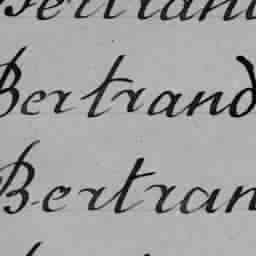 Bertrand
Bertrand
Bertran